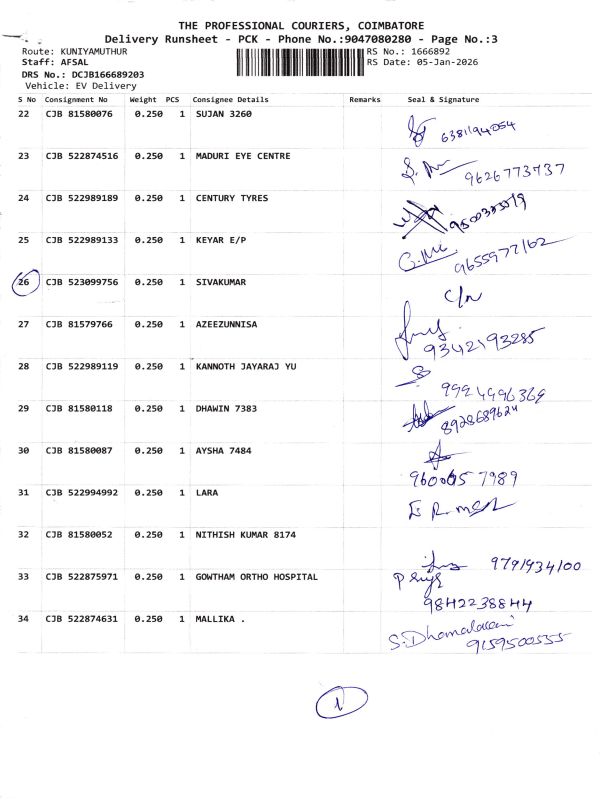 THE PROFESSIONAL COURIERS, COIMBATORE
Delivery Runsheet - PCK - Phone No.:9047080280 - Page No.:3
Route: KUNIYAMUTHUR RS No.: 1666892
Staff: AFSAL RS Date: 05-Jan-2026
DRS No.: DCJB166689203
Vehicle: EV Delivery
S No Consignment No Weight PCS Consignee Details Remarks Seal & Signature
22 CJB 81580076 0.250 1 SUJAN 3260
6381194054
23 CJB 522874516 0.250 1 MADURI EYE CENTRE
9626773737
24 CJB 522989189 0.250 1 CENTURY TYRES
25 CJB 522989133 0.250 1 KEYAR E/P
9655977162
26 CJB 523099756 0.250 1 SIVAKUMAR
27 CJB 81579766 0.250 1 AZEEZUNNISA
9342193285
28 CJB 522989119 0.250 1 KANNOTH JAYARAJ YU
9994996369
29 CJB 81580118 0.250 1 DHAWIN 7383
8928689624
30 CJB 81580087 0.250 1 AYSHA 7484
31 CJB 522994992 0.250 1 LARA
32 CJB 81580052 0.250 1 NITHISH KUMAR 8174
9791934100
33 CJB 522875971 0.250 1 GOWTHAM ORTHO HOSPITAL
9842238844
34 CJB 522874631 0.250 1 MALLIKA .
9159500555
1